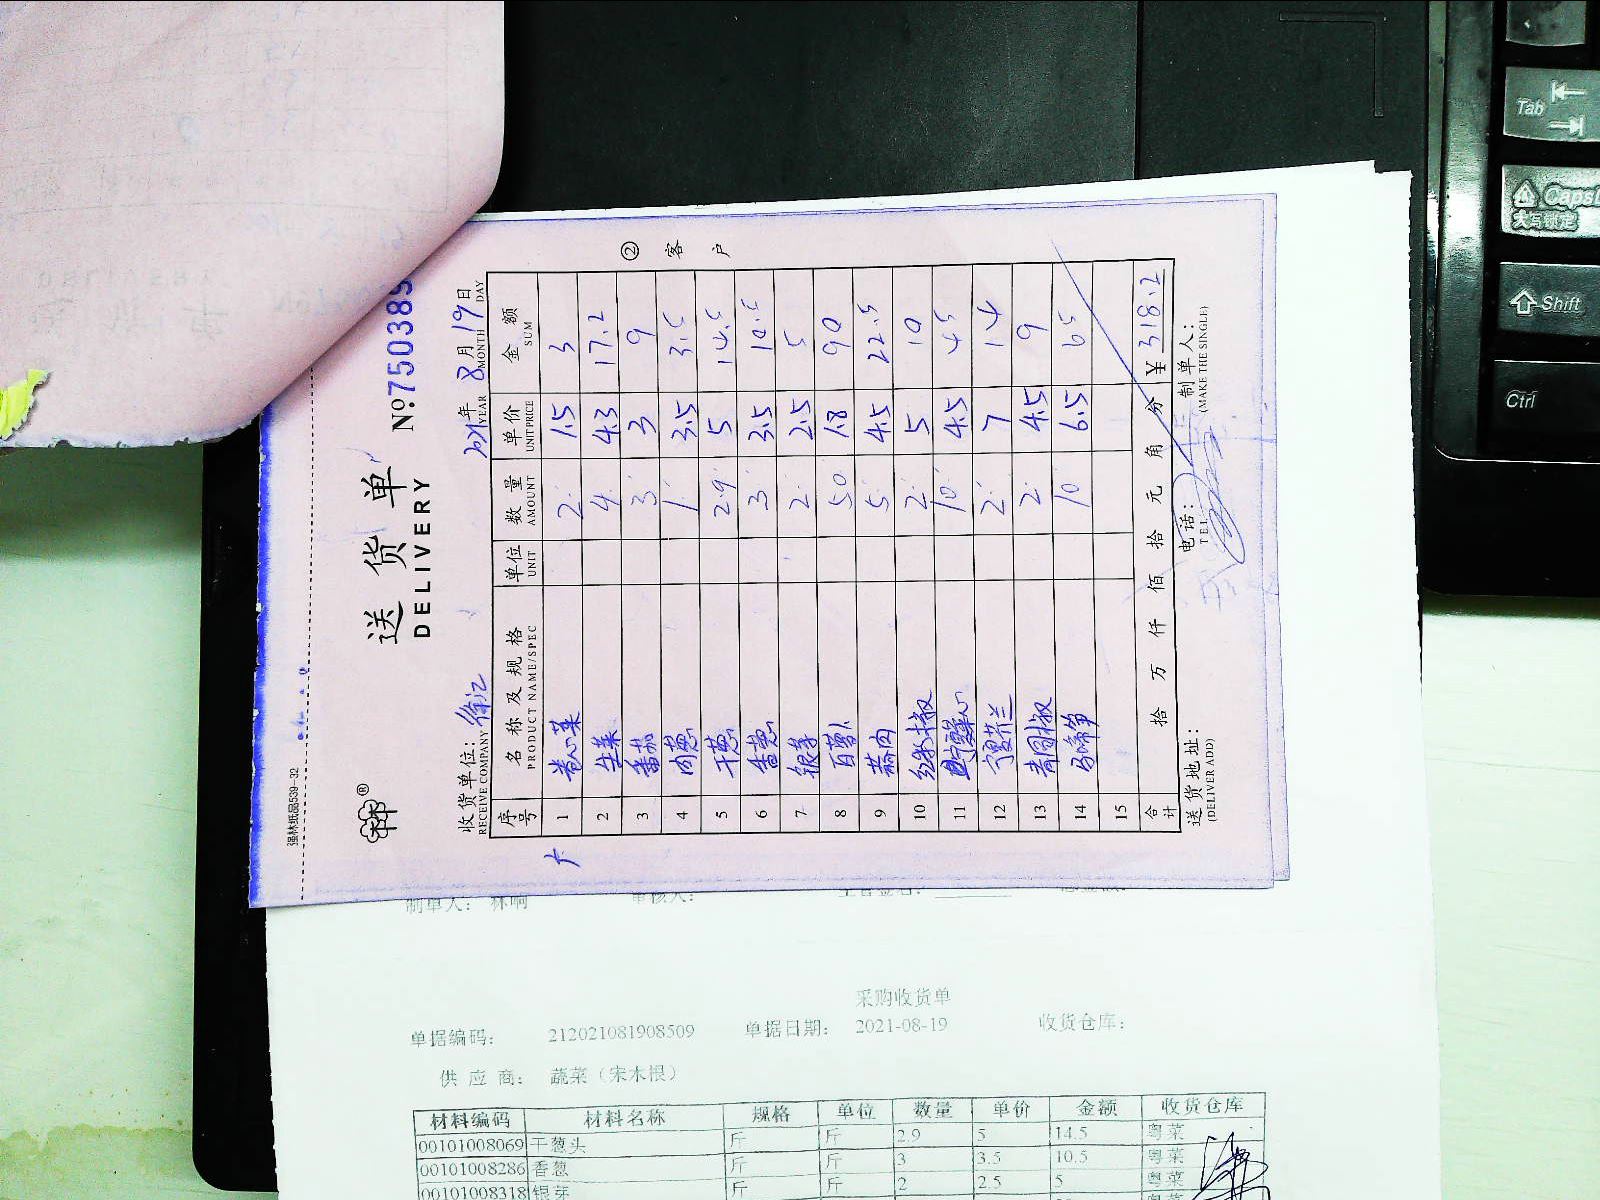 强林纸品539-32
送货单
DELIVERY
No 750389
收货单位: 徐汇
RECEIVE COMPANY
2021年 8月 19日
YEAR MONTH DAY
② 客户
序号 名称及规格 单位 数量 单价 金额
PRODUCT NAME/SPEC UNIT AMOUNT UNIT PRICE SUM
1 卷心菜 2 1.5 3
2 生菜 4 4.3 17.2
3 番茄 3 3 9
4 肉葱 1 3.5 3.5
5 干葱 2.9 5 14.5
6 香葱 3 3.5 10.5
7 银芽 2 2.5 5
8 白萝卜 50 1.8 90
9 蒜肉 5 4.5 22.5
10 红尖椒 2 5 10
11 10 4.5 45
12 2 7 14
13 青圆椒 2 4.5 9
14 马蹄笋 10 6.5 65
15
合计 拾 万 仟 佰 拾 元 角 分 ¥ 318.2
送货地址: 电话: 制单人:
(DELIVER ADD) TEL (MAKE THE SINGLE)
制单人: 林响 审核人:
采购收货单
单据编码: 212021081908509 单据日期: 2021-08-19 收货仓库:
供应商: 蔬菜（宋木根）
材料编码 材料名称 规格 单位 数量 单价 金额 收货仓库
00101008069 干葱头 斤 斤 2.9 5 14.5 粤菜
00101008286 香葱 斤 斤 3 3.5 10.5 粤菜
00101008318 银芽 斤 斤 2 2.5 5 粤菜
Tab
CapsL
大写锁定
Shift
Ctrl